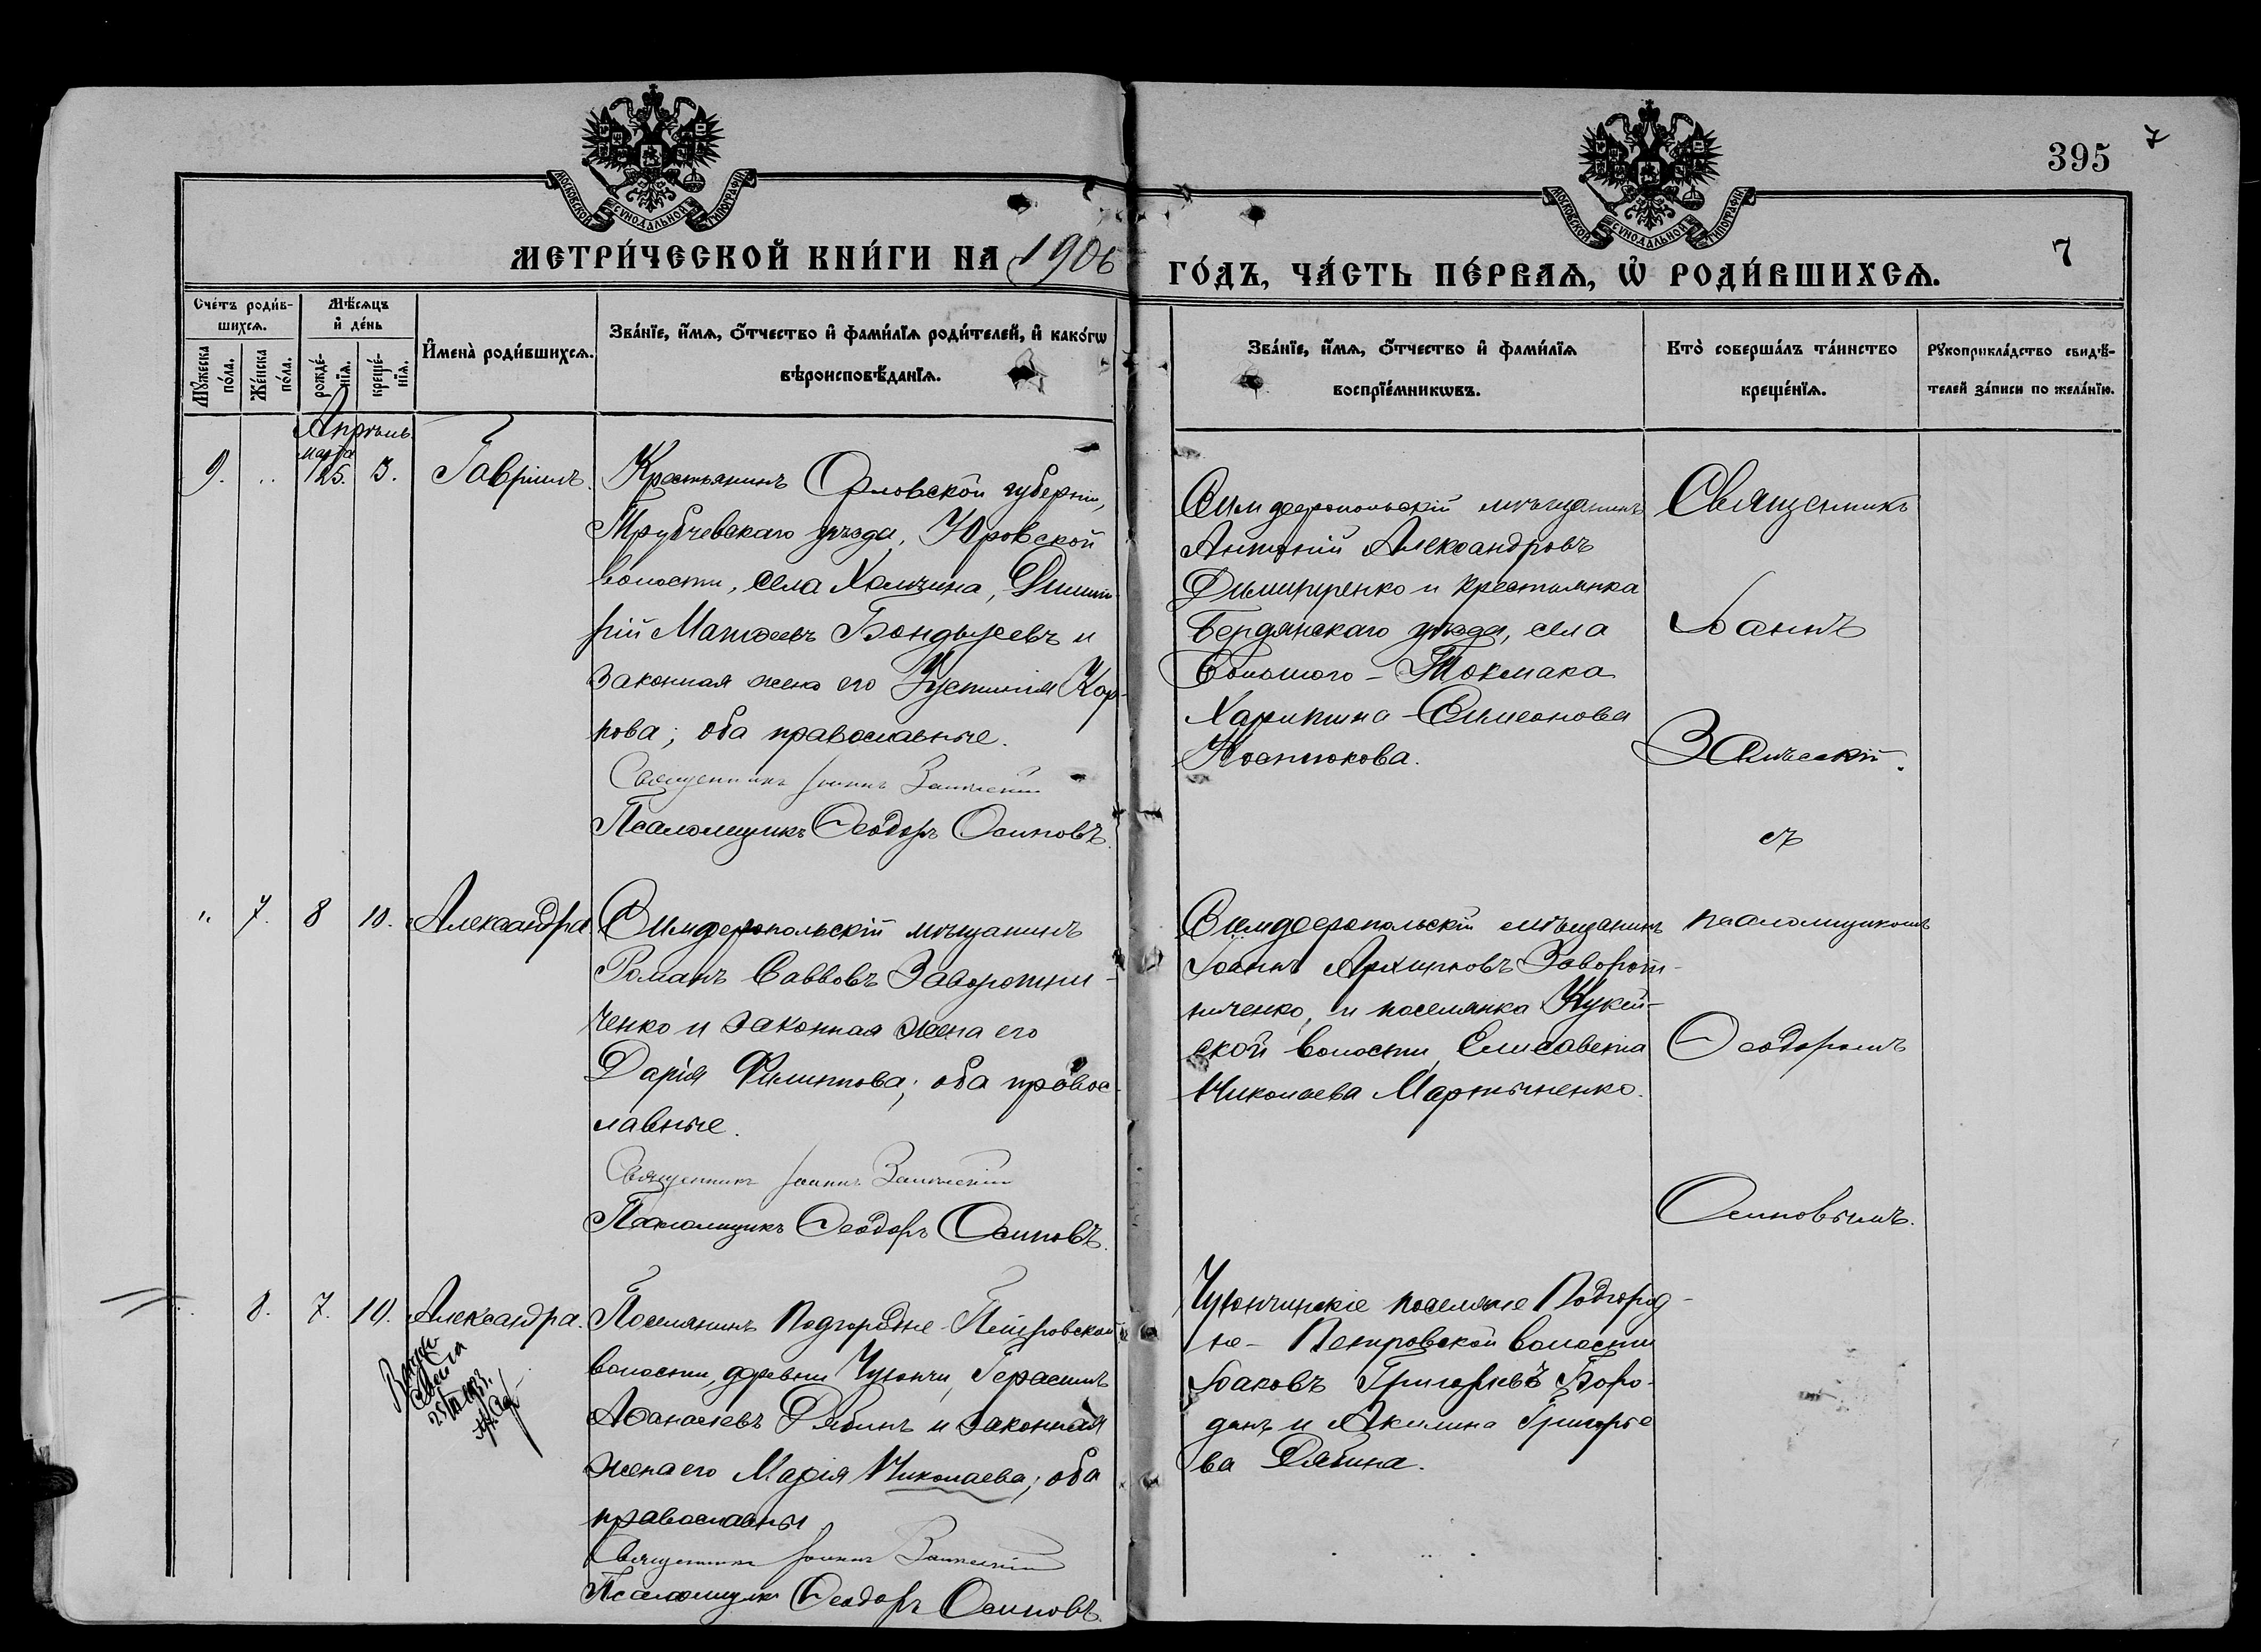 395
7
МОСКОВСКОЙ СѴНОДАЛЬНОЙ ТИПОГРАФІИ
МОСКОВСКОЙ СѴНОДАЛЬНОЙ ТИПОГРАФІИ
МЕТРИ́ЧЕСКОЙ КНИ́ГИ НА 1906 ГО́ДЪ, ЧА́СТЬ ПЕ́РВАѦ, Ѡ҆ РОДИ́ВШИХСѦ.
7
Сче́тъ роди́в-
шихсѧ.
Мꙋ́жеска
по́ла.
Же́нска
по́ла.
Мѣ́сѧцъ
и҆ де́нь
рожде́-
нїѧ.
креще́-
нїѧ.
И҆мена̀ роди́вшихсѧ.
Зва́нїе, и҆́мѧ, ѻ҆́тчество и҆ фами́лїѧ роди́телей, и҆ како́гѡ
вѣроисповѣ́данїѧ.
Зва́нїе, и҆́мѧ, ѻ҆́тчество и҆ фами́лїѧ
воспрїе́мникѡвъ.
Кто̀ соверша́лъ та́инство
креще́нїѧ.
Рꙋкоприкла́дство свидѣ́-
телей за́писи по жела́нїю.
Апрѣль
марта
9.
25.
3.
Гавріилъ.
Крестьянинъ Орловской губерніи,
Трубчевскаго уѣзда, Юровской
волости, села Халчина, Димит-
рій Матѳеевъ Бондыревъ и
законная жена его Устинія Кар-
пова; оба православные.
Священникъ Іоаннъ
Псаломщикъ Ѳеодоръ Осиповъ.
Симферопольскій мѣщанинъ
Антоній Александровъ
Димитренко и крестьянка
Бердянскаго уѣзда, села
Большого-Токмака
Харитина Симеонова
Костюкова.
Священникъ
Іоаннъ
съ
псаломщикомъ
Ѳеодоромъ
Осиповымъ.
7.
8
10.
Александра
Симферопольскій мѣщанинъ
Романъ Саввовъ Заворотни-
ченко и законная жена его
Дарія Филиппова; оба правос-
лавные.
Священникъ Іоаннъ
Псаломщикъ Ѳеодоръ Осиповъ.
Симферопольскій мѣщанинъ
Іоаннъ Архиповъ Заворот-
ниченко, и поселянка Кукей-
ской волости Елисавета
Николаева Мартыненко.
8.
7.
10.
Александра.
Поселянинъ Подгородне-Петровской
волости, деревни Чуюнчи, Герасимъ
Аѳанасіевъ Рябинъ и законная
жена его Марія Николаева; оба
православны
Священникъ Іоаннъ
Псаломщикъ Ѳеодоръ Осиповъ.
Чуюнчинскіе поселяне Подгород-
не-Петровской волости
Іаковъ Григорьевъ Боро-
данъ и Акилина Григорье
ва Рябина.